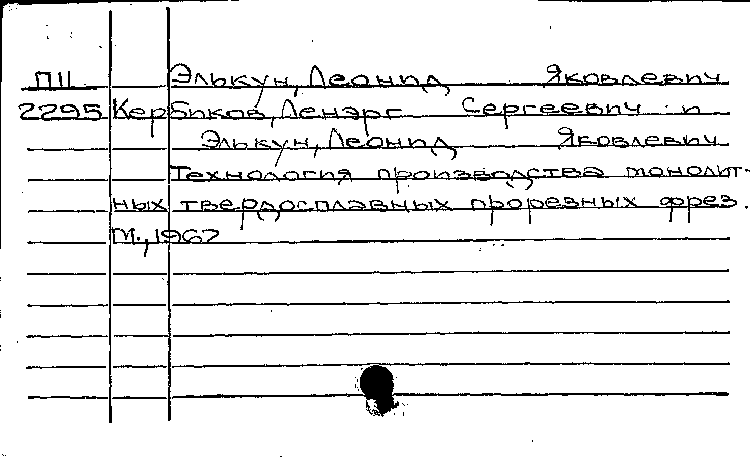 П11 Элькун, Леонид Яковлевич
2295 Кербиков, Ленэрг Сергеевич и
Элькун, Леонид Яковлевич
Технология производства монолит-
ных твердосплавных прорезных фрез.
М., 1967